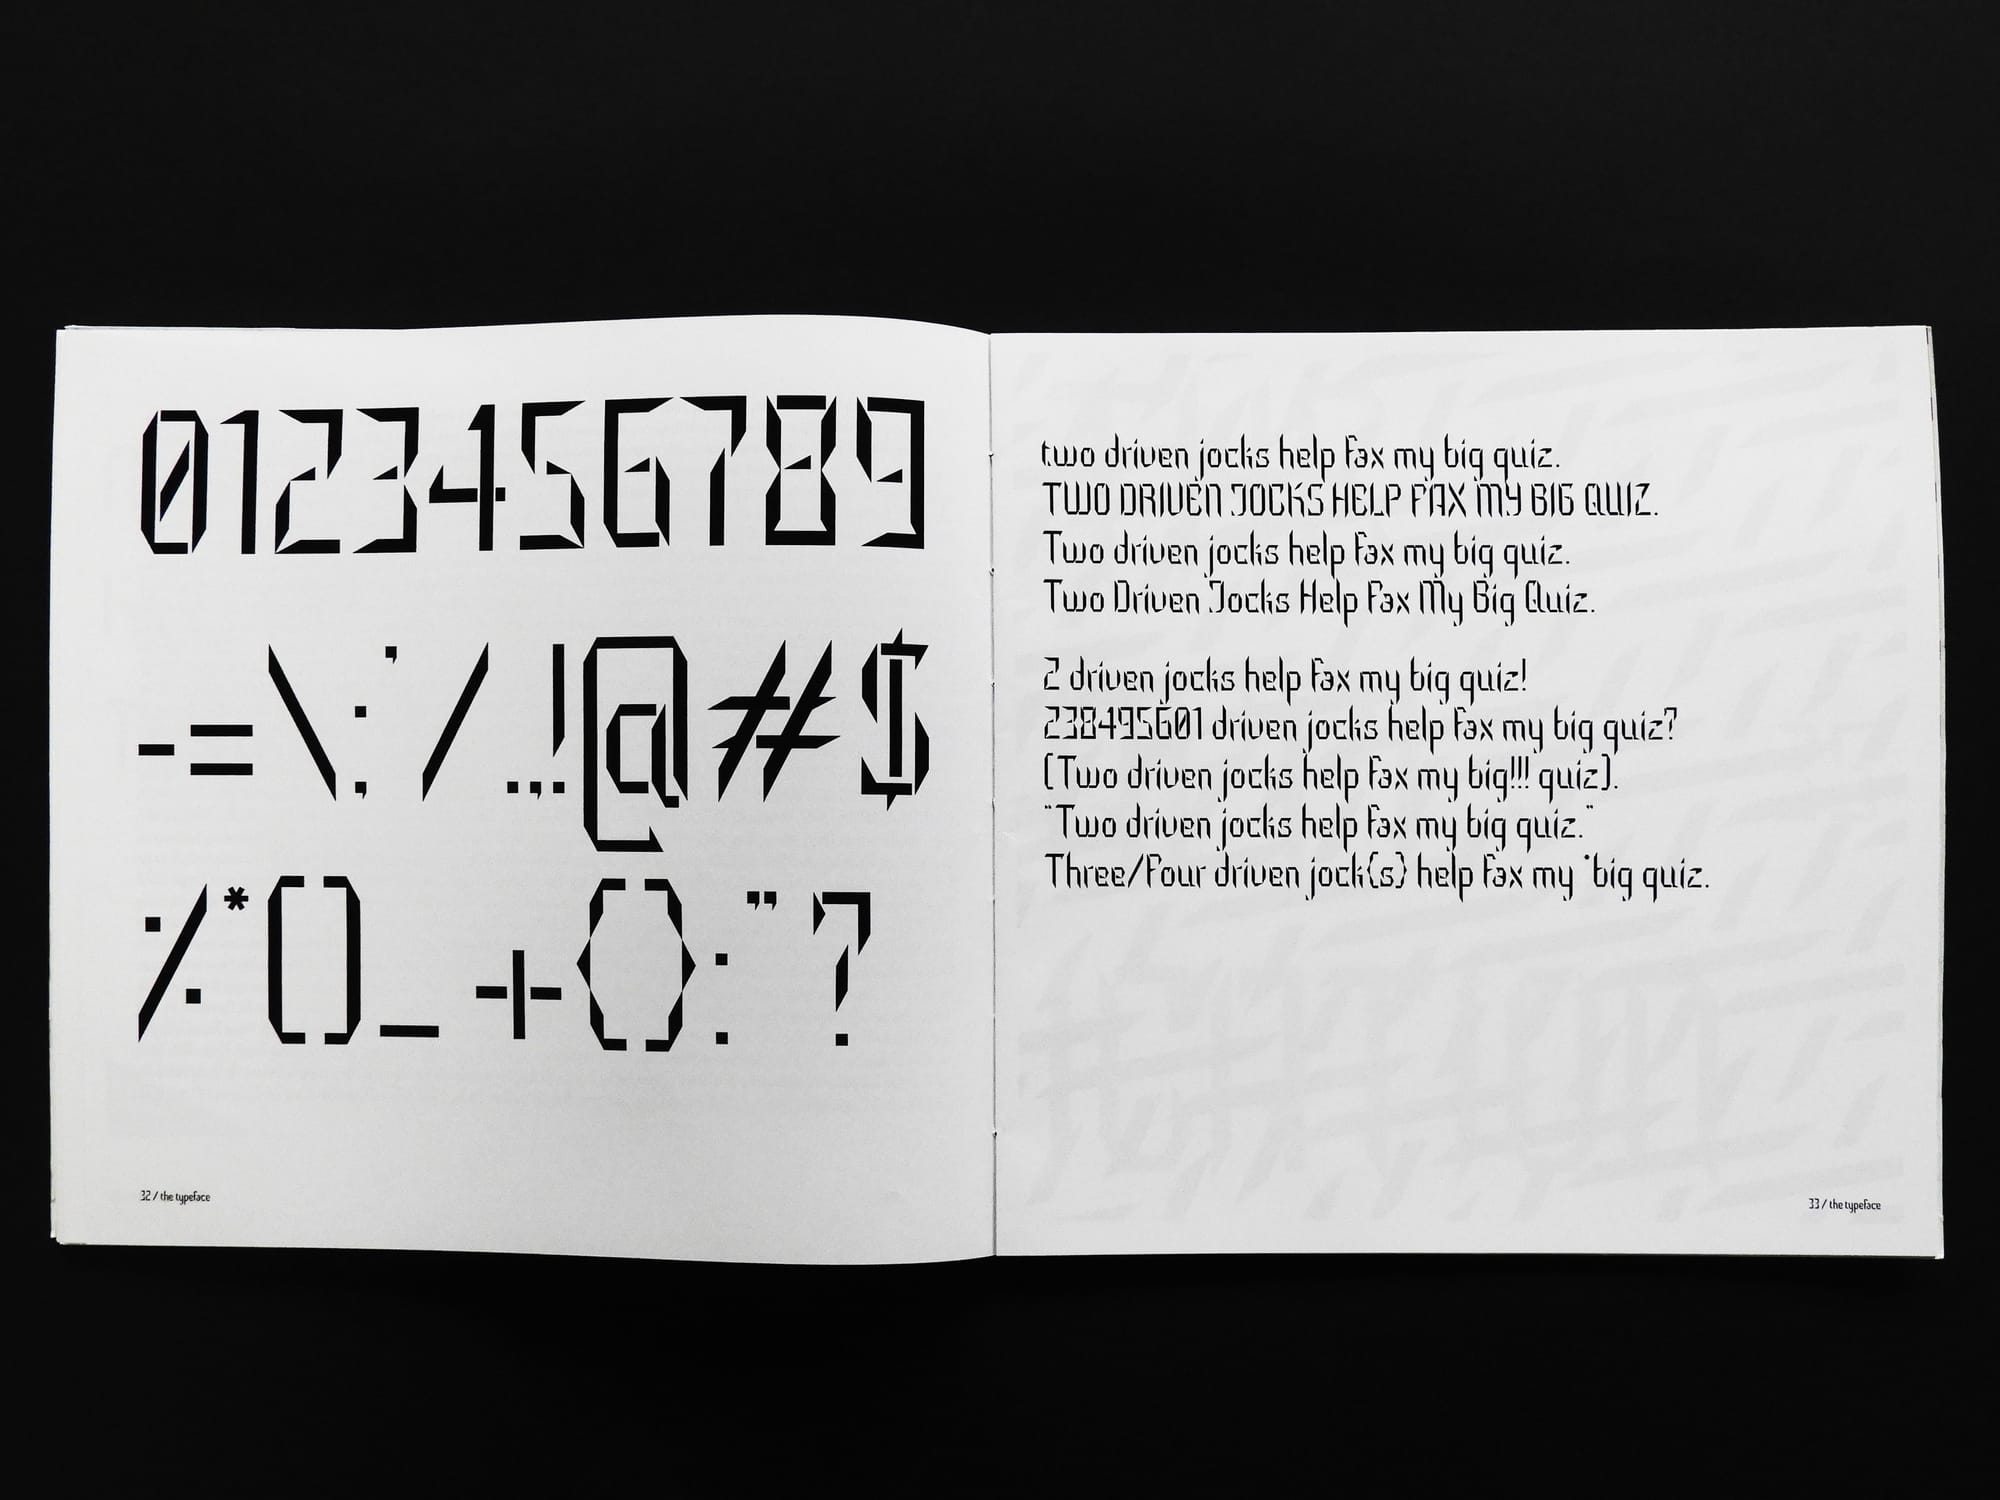 0123456789
-=\;'/.,.!@#$
%*()_+{}:"?
32 / the typeface
two driven jocks help fax my big quiz.
TWO DRIVEN JOCKS HELP FAX MY BIG QUIZ.
Two driven jocks help fax my big quiz.
Two Driven Jocks Help Fax My Big Quiz.
2 driven jocks help fax my big quiz!
238495601 driven jocks help fax my big quiz?
(Two driven jocks help fax my big!!! quiz).
"Two driven jocks help fax my big quiz."
Three/Four driven jock{s} help fax my 'big quiz.
33 / the typeface